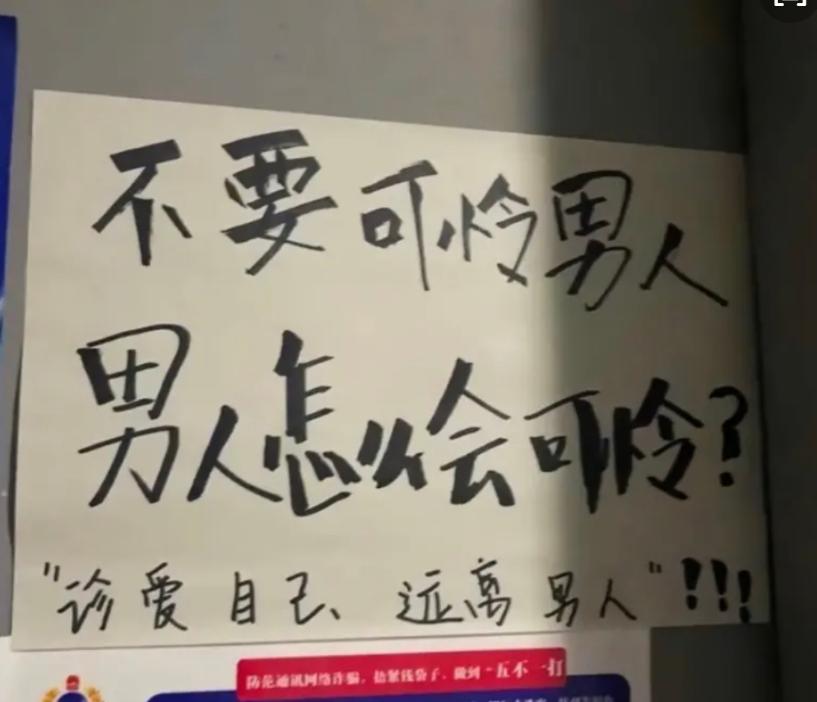 不要可怜男人
男人怎么会可怜?
"诊爱自己、远离男人"!!!
防范通讯网络诈骗,捂紧钱袋子,做到“五不一打